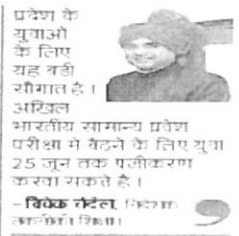 प्रदेश के
युवाओं
के लिए
यह बड़ी
सौगात है।
अखिल
भारतीय सामान्य प्रवेश
परीक्षा में बैठने के लिए युवा
25 जून तक पंजीकरण
करवा सकते है।
- विवेक चंदेल, निदेशक
तकनीकी शिक्षा।